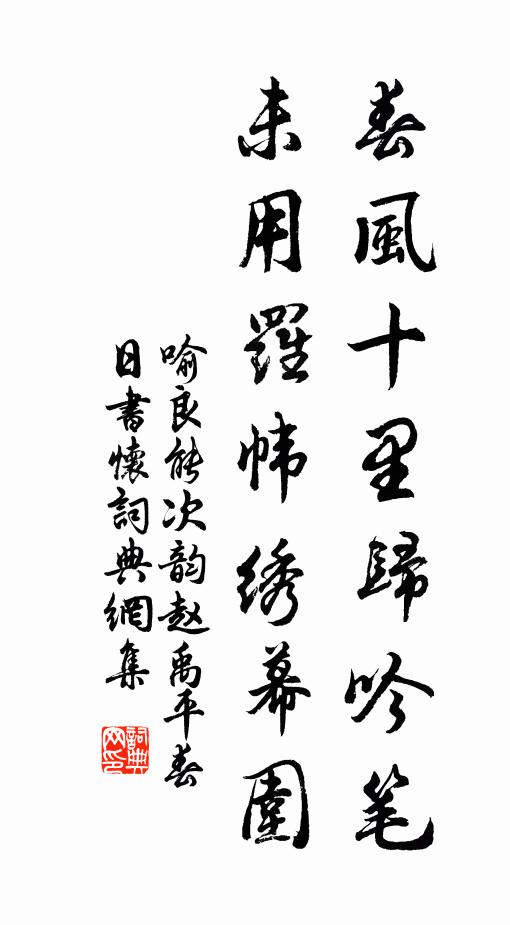 春風十里歸吟笔
未用羅幃绣幕圍
喻良能次韵赵禹平春
日書懷詞典網集
詞典网印